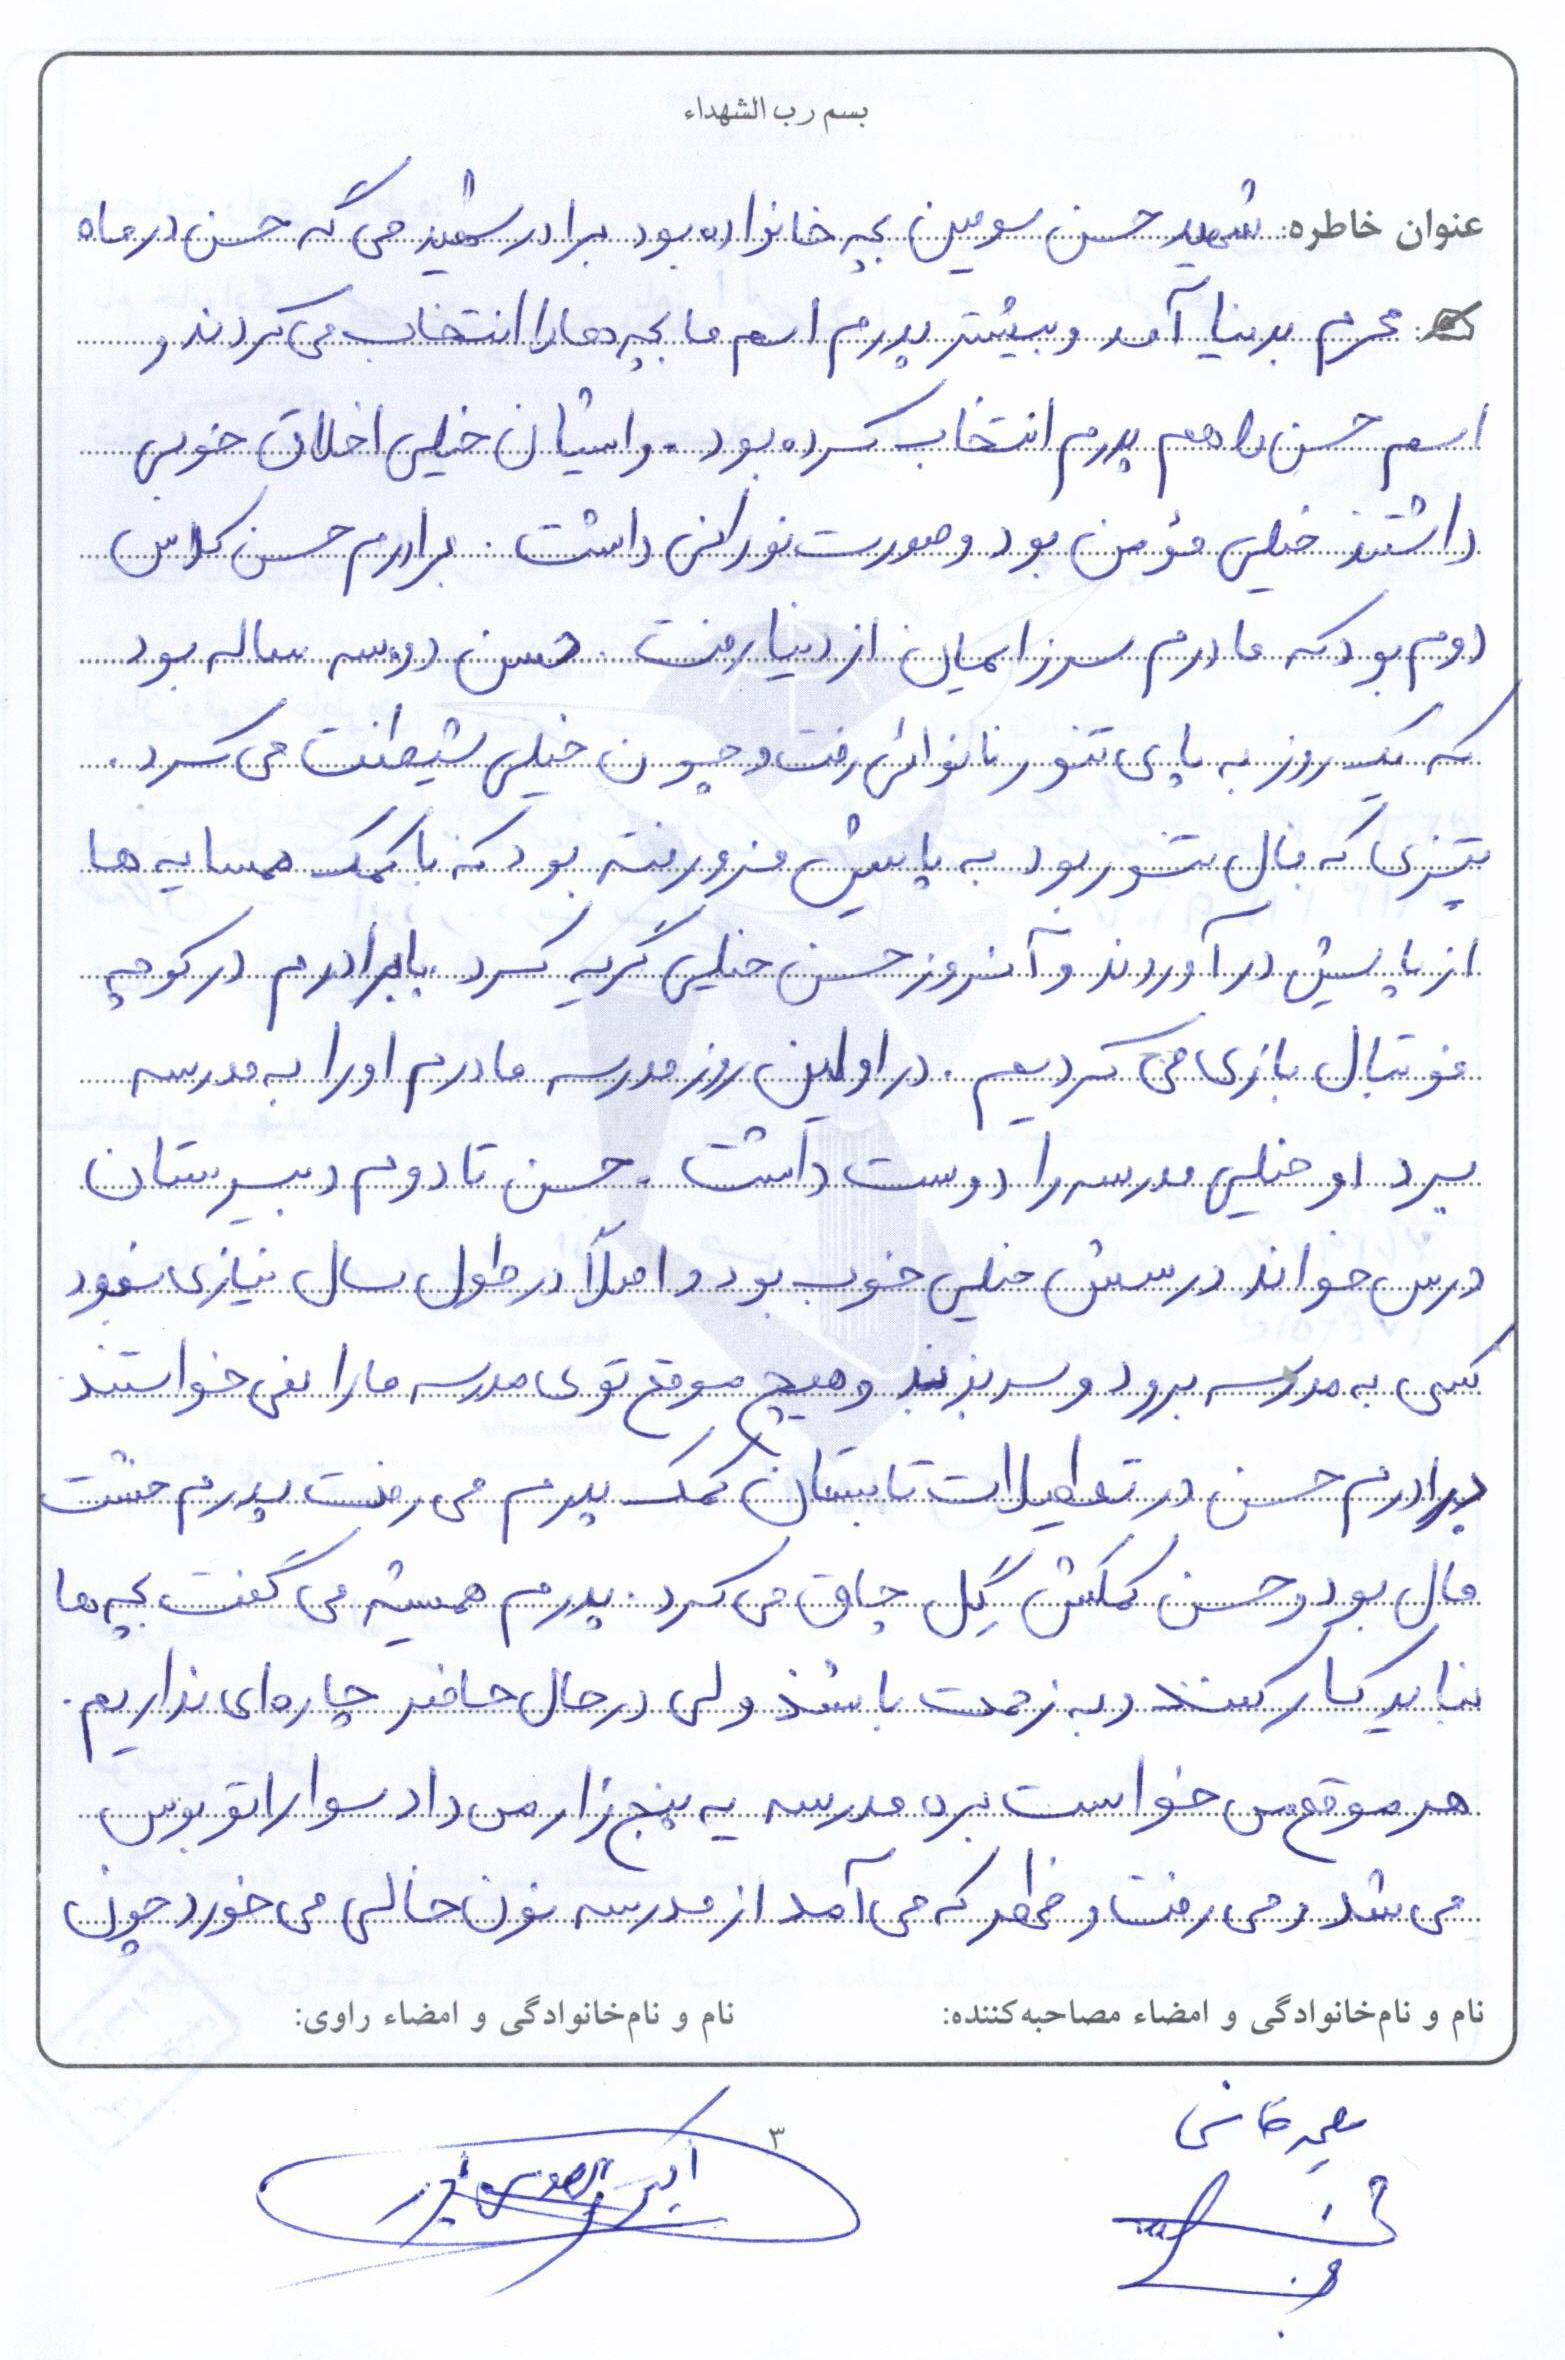 بسم رب الشهداء
عنوان خاطره: شهید حسن سومین بچه خانواده بود برادر شهید می گه حسن در ماه
محرم بدنیا آمد و بیشتر پدرم اسم ما بچه ها را انتخاب می کردند و
اسم حسن را هم پدرم انتخاب کرده بود. و ایشان خیلی اخلاق خوبی
داشتند خیلی مؤمن بود و صورت نورانی داشت. برادرم حسن کلاس
دوم بود که مادرم سرزایمان از دنیا رفت. حسن دو سه ساله بود
که یک روز به پای تنور نانوائی رفت و چون خیلی شیطنت می کرد.
چیزی که مال تنور بود به پایش فرو رفته بود که با کمک همسایه ها
از پایش در آوردند و آنروز حسن خیلی گریه کرد. با برادرم در کوچه
فوتبال بازی می کردیم. در اولین روز مدرسه مادرم او را به مدرسه
برد او خیلی مدرسه را دوست داشت. حسن تا دوم دبیرستان
درس خواند درسش خیلی خوب بود و اصلاً در طول سال نیازی نبود
کسی به مدرسه برود و سر بزند و هیچ موقع توی مدرسه ما را نمی خواستند
برادرم حسن در تعطیلات تابستان کمک پدرم می رفت پدرم خشت
مال بود و حسن کمکش گِل چاق می کرد. پدرم همیشه می گفت بچه ها
نباید کار کنند و به زحمت باشند ولی در حال حاضر چاره ای نداریم.
هر موقع می خواست بره مدرسه یه پنج زار می داد سوار اتوبوس
می شد و می رفت و ظهر که می آمد از مدرسه نون خالی می خورد چون
نام و نام‌خانوادگی و امضاء مصاحبه‌کننده:
نام و نام‌خانوادگی و امضاء راوی:
۳